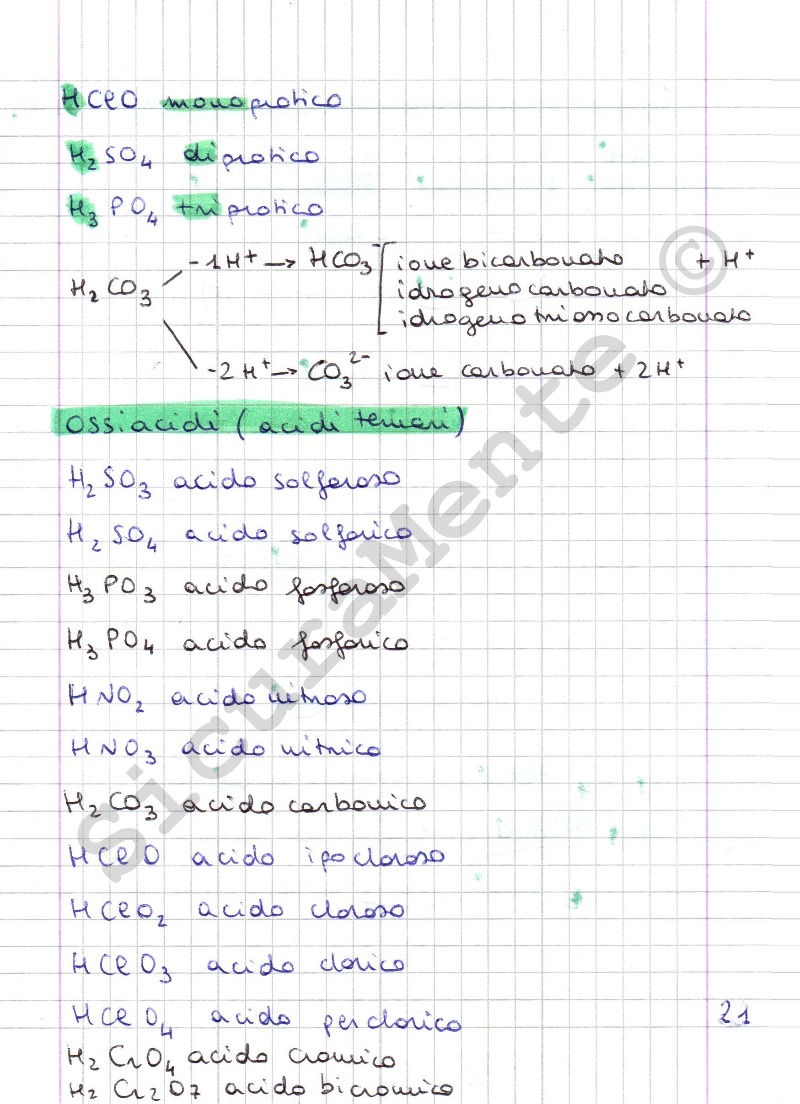 HClO monoprotico
H₂SO₄ diprotico
H₃PO₄ triprotico
-1H⁺ → HCO₃⁻ [ione bicarbonato + H⁺
H₂CO₃ idrogenocarbonato
idrogenotriossocarbonato
-2H⁺ → CO₃²⁻ ione carbonato + 2H⁺
Ossiacidi (acidi ternari)
H₂SO₃ acido solforoso
H₂SO₄ acido solforico
H₃PO₃ acido fosforoso
H₃PO₄ acido fosforico
HNO₂ acido nitroso
HNO₃ acido nitrico
H₂CO₃ acido carbonico
HClO acido ipocloroso
HClO₂ acido cloroso
HClO₃ acido clorico
HClO₄ acido perclorico
21
H₂CrO₄ acido cromico
H₂Cr₂O7 acido bicromico
SicuraMente ©